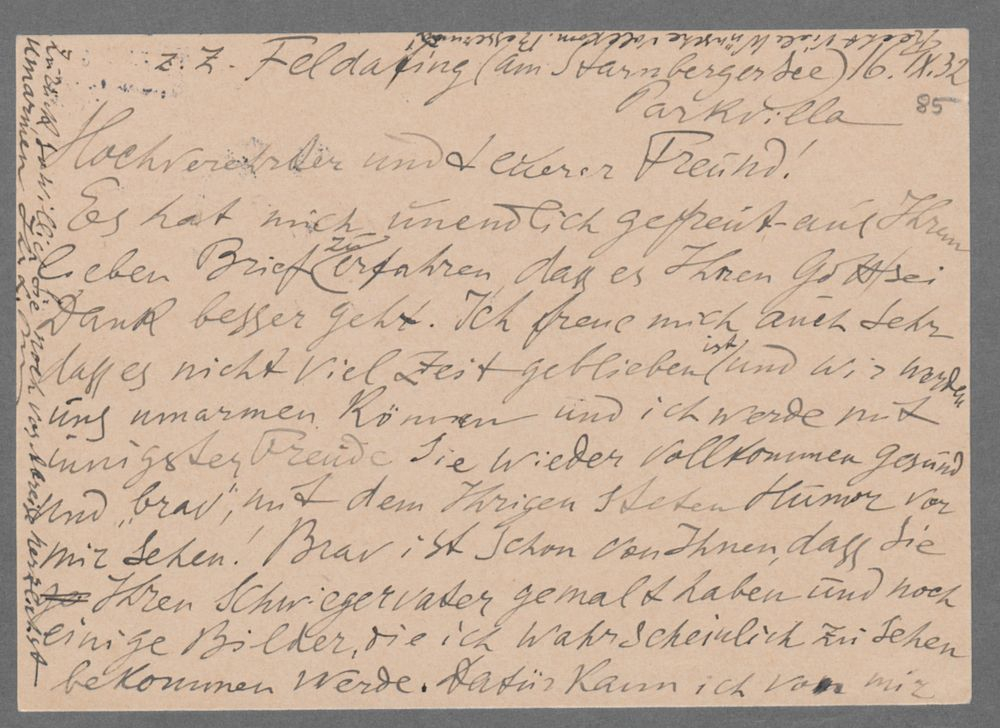 Recht viele Wünsche vollkom. Besserung!
z. Z. Feldafing (am Starnbergersee) 16. IX. 32
Parkvilla
85
Hochverehrter und teuerer Freund!
Es hat mich unendlich gefreut aus Ihrem
lieben Brief zu erfahren, dass es Ihnen Gott sei
Dank besser geht. Ich freue mich auch sehr
dass es nicht viel Zeit geblieben ist und wir werden
uns umarmen können und ich werde mit
innigster Freude Sie wieder vollkommen gesund
und „brav", mit dem Ihrigen steten Humor vor
mir sehen! Brav ist schon von Ihnen, dass Sie
Ihren Schwiegervater gemalt haben und noch
einige Bilder, die ich wahrscheinlich zu sehen
bekommen werde. Dafür kann ich von mir
zurück und will Sie noch vor Abreise herzlichst
umarmen